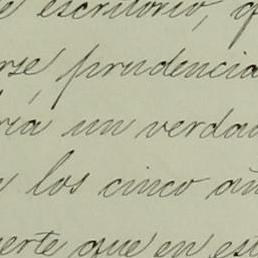 e escritorio, q
rse, prudencia
ría un verdad
los cinco añ
uerte que en est